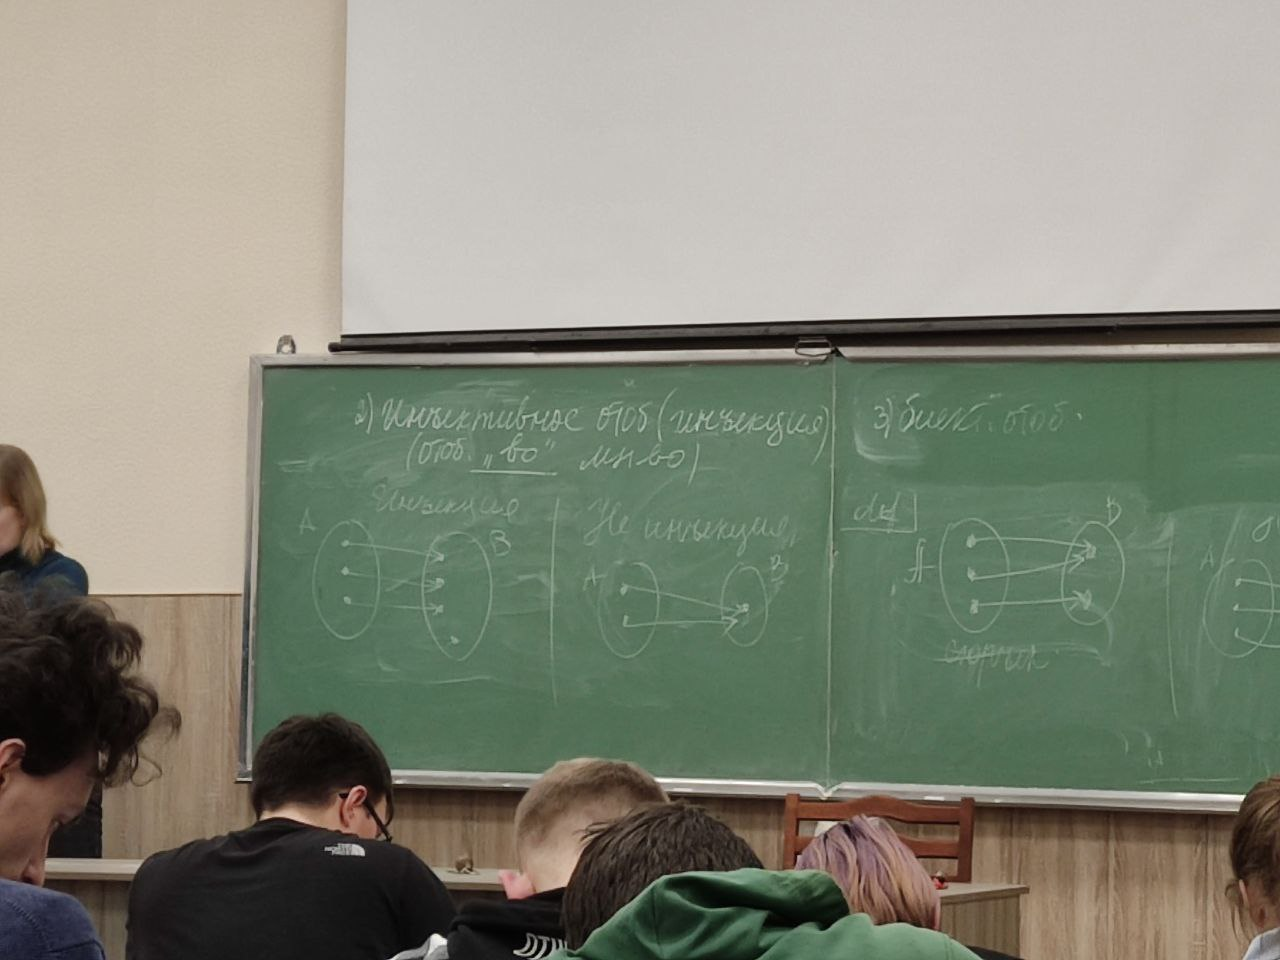 2) Инъективное отоб (инъекция)
(отоб. „во" мн-во)
Инъекция
Не инъекция
A
B
A
B
3) биект. отоб.
def
A
B
сюръек.
A
THE NORTH FACE